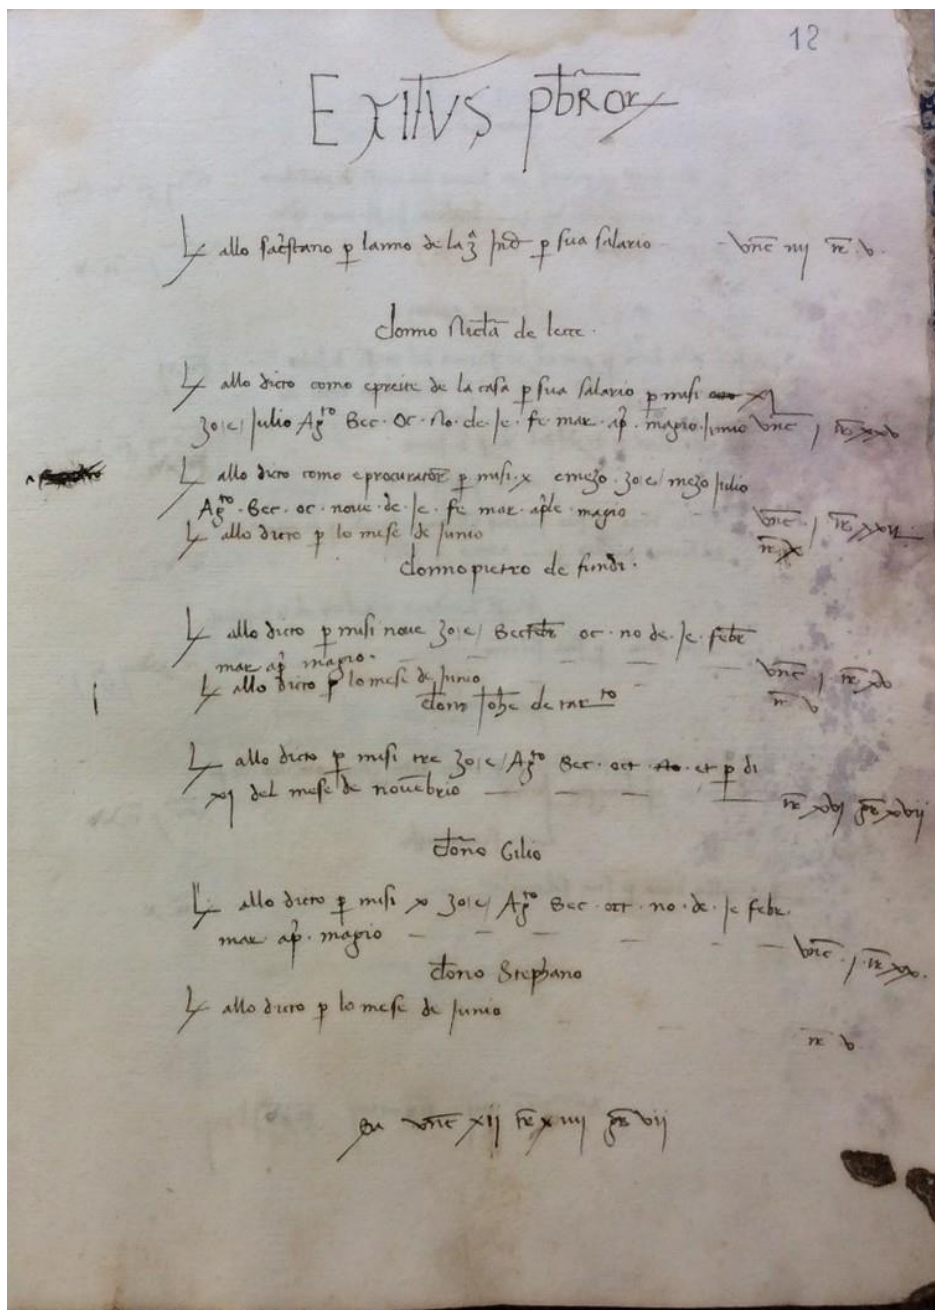 12
EXITVS pbrOR
allo sacstano p lanno de la 3a Ind p sua salario vnc iiij tr v
donno Nicta de lecce
allo dicto como epreite de la casa p sua salario p misi xj
zo e Julio Agto Sec. oc. No. de. Je. fe mar. ap. magio. Junio vnc j tr xxv
allo dicto como eprocurator p misi x emezo zo e mezo Julio
Agto. Sec. oc. nove. de. Je. fe mar. aple. magio vnc. j tr xxij
allo dicto p lo mese de Junio
donno pietro de fundi.
allo dicto p misi nove zo e Sectebr oc. no de. Je. febr
mar ap magio. vnc j tr xv
allo dicto p lo mese de Junio tr v
donno Johe de
allo dicto p misi tre zo e Agto Sec. oct. et p di
xj del mese de novebrio tr xvj gr xvij
dono Cilio
allo dicto p misi x zo e Agto Sec. oct. no. de. Je febr.
mar ap. magio vnc. j. tr xx.
dono Stephano
allo dicto p lo mese de Junio
tr v
Sa vnc xij tr xiiij gr vij